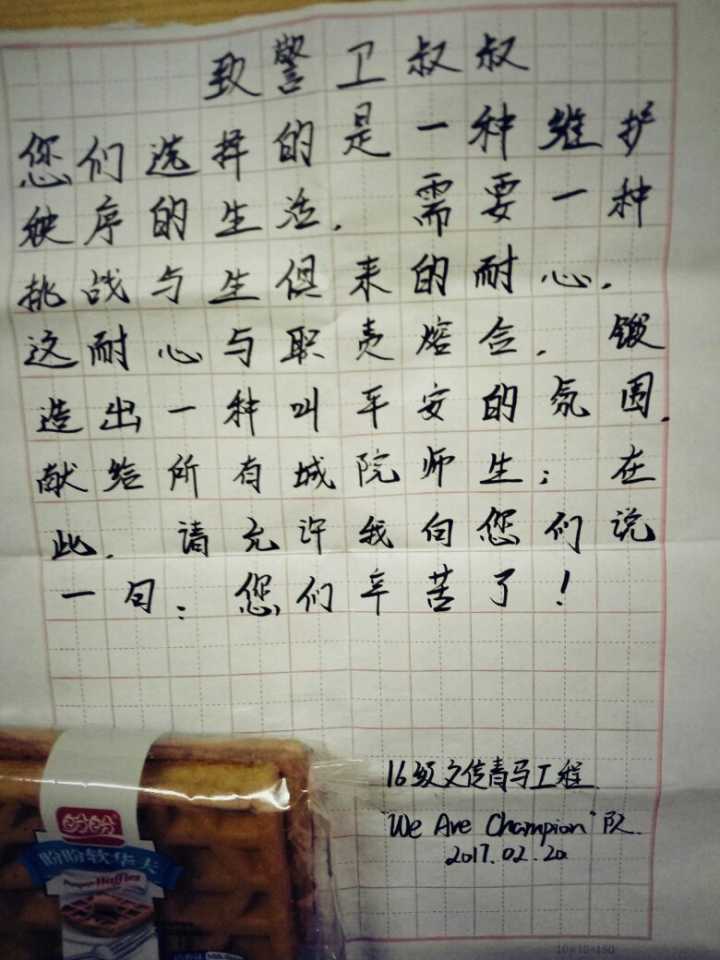 致警卫叔叔
您们选择的是一种维护
秩序的生活. 需要一种
挑战与生俱来的耐心.
这耐心与职责熔合. 锻
造出一种叫平安的氛围.
献给所有城院师生; 在
此. 请允许我向您们说
一句: 您们辛苦了!
16级文传青马工程
"We Are Champion"队
2017.02.20
盼盼
盼盼软华夫
Waffles